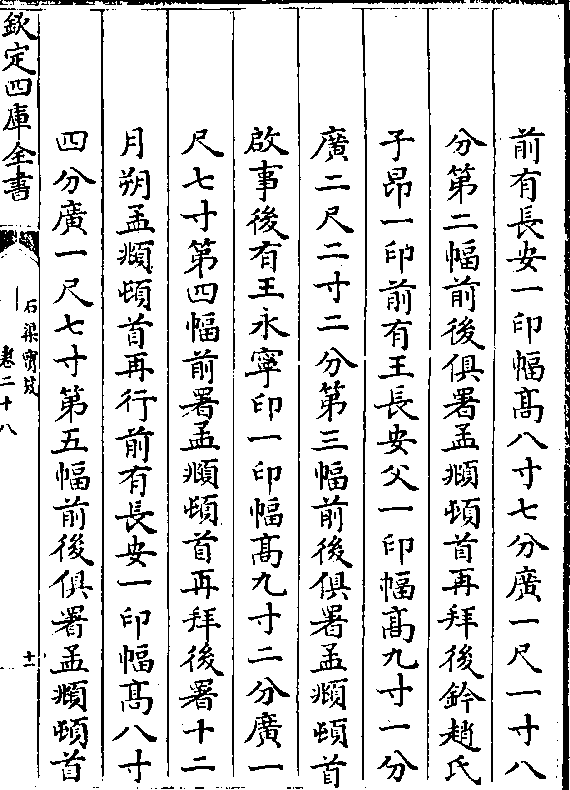 前有長安一印幅髙八寸七分廣一尺一寸八
分第二幅前後俱署孟頫頓首再拜後鈐趙氏
子昂一印前有王長安父一印幅髙九寸一分
廣二尺二寸二分第三幅前後俱署孟頫頓首
啟事後有王永寧印一印幅髙九寸二分廣一
尺七寸第四幅前署孟頫頓首再拜後署十二
月朔孟頫頓首再行前有長安一印幅髙八寸
四分廣一尺七寸第五幅前後俱署孟頫頓首
欽定四庫全書
石渠寶笈
卷二十八
十一